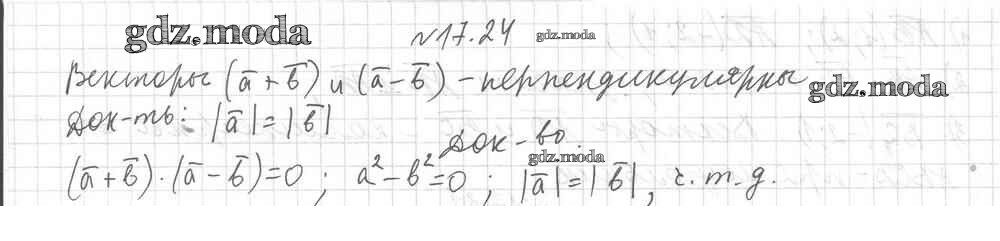 gdz.moda №17.24 gdz.moda
Векторы (a̅ + b̅) и (a̅ - b̅) - перпендикулярны gdz.moda
Док-ть: |a̅| = |b̅|
Док-во. gdz.moda
(a̅ + b̅) · (a̅ - b̅) = 0 ; a² - b² = 0 ; |a̅| = |b̅|, ч.т.д.